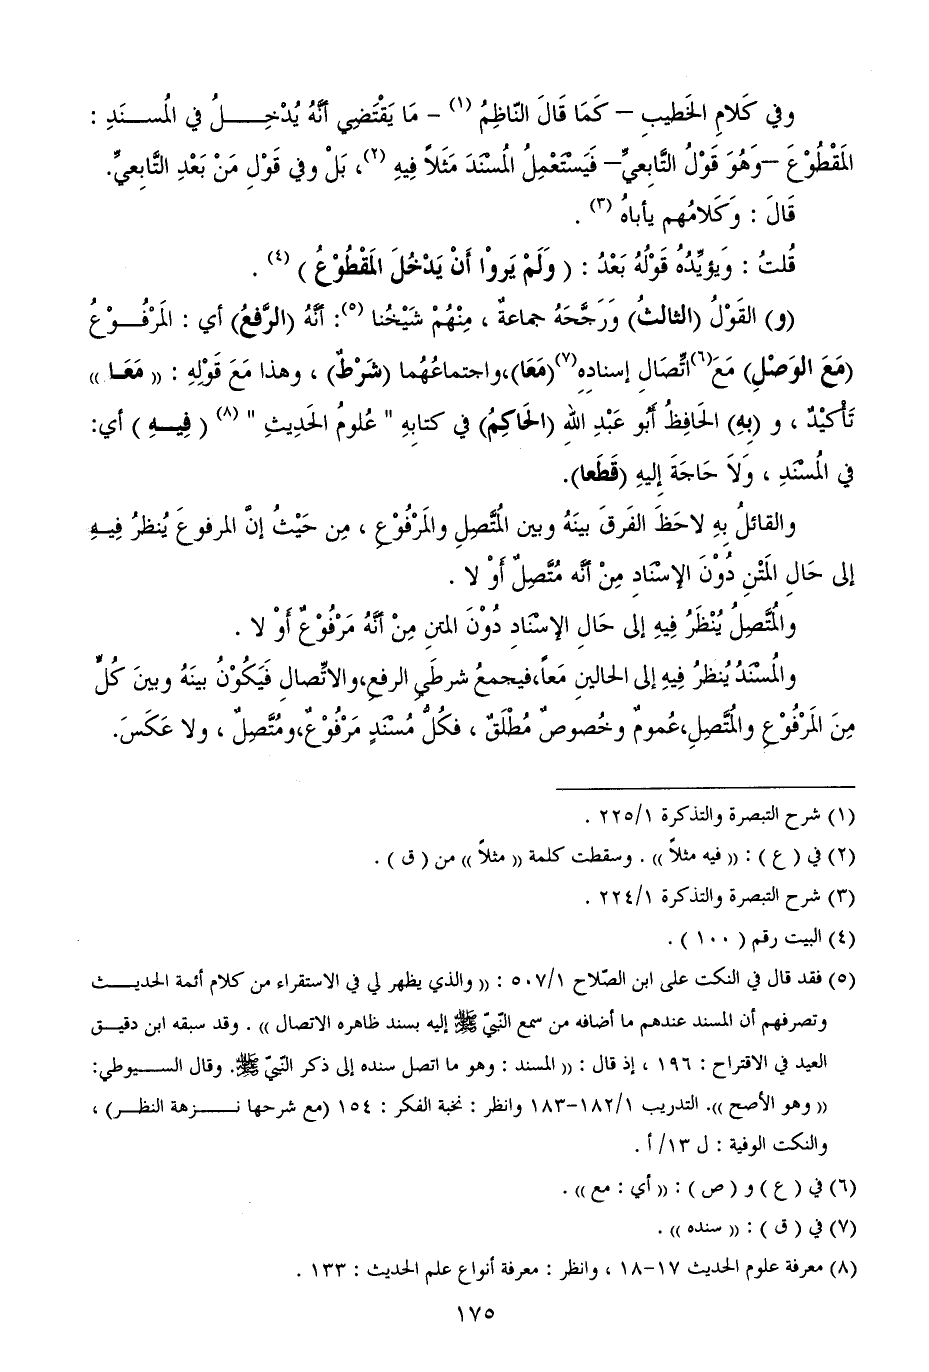 وفي كَلامِ الخَطيبِ – كَمَا قَالَ النّاظِمُ (١) – مَا يَقْتَضِي أنَّهُ يُدْخِــلُ في المُسـنَدِ :
المَقْطُوْعَ –وَهُوَ قَوْلُ التَّابِعيِّ– فَيَسْتَعْمِلُ المُسْنَدَ مَثَلاً فِيهِ (٢)، بَلْ وفي قَوْلِ مَنْ بَعْدَ التَّابعيِّ.
قَالَ : وَكَلامُهم يأباهُ (٣) .
قُلتُ : وَيؤيِّدُه قَوْلُهُ بَعْدُ : ( وَلَمْ يَروا أَنْ يَدْخُلَ المَقْطُوْعُ ) (٤) .
(و) القَوْلُ (الثالثُ) وَرَجَّحَهُ جماعةٌ ، مِنْهُمْ شَيْخُنا (٥): أنَّهُ (الرَّفعُ) أي : المَرْفُـوْعُ
(مَعَ الوَصْلِ) مَعَ (٦)اتِّصَالِ إسنادِهِ(٧)(مَعَا)،واجتماعُهُما (شَرْطٌ) ، وهذا مَعَ قَوْلِهِ : (( مَعَـا ))
تَأْكيْدٌ ، و (بِهِ) الحَافِظُ أَبُو عَبْدِ اللهِ (الحَاكِمُ) في كتابِهِ " عُلُومُ الحَديثِ " (٨) ( فِيـهِ ) أي:
في المُسْنَدِ ، وَلاَ حَاجَةَ إليهِ (قَطَعا).
والقائلُ بِهِ لاحَظَ الفَرقَ بينَهُ وبين المُتَّصِلِ والمَرْفُوْعِ ، مِن حَيْثُ إنَّ المرفوعَ يُنظرُ فِيـهِ
إلى حَالِ المَتْنِ دُوْنَ الإسْنَادِ مِنْ أنَّه مُتَّصِلٌ أَوْ لا .
والمُتَّصِلُ يُنْظَرُ فِيهِ إلى حَالِ الإسْنَادِ دُوْنَ المتنِ مِنْ أنَّهُ مَرْفُوْعٌ أَوْ لا .
والمُسْنَدُ يُنظرُ فِيهِ إلى الحالينِ مَعاً،فيجمعُ شرطَي الرفعِ،والاتِّصالِ فَيَكُوْنُ بينَهُ وبينَ كُلٍّ
مِنَ المَرْفُوْعِ والمُتَّصِلِ،عُمومٌ وخُصوصٌ مُطْلَقٌ ، فكُلُّ مُسْنَدٍ مَرْفُوْعٌ،ومُتَّصِلٌ ، ولا عَكَسَ.
(١) شرح التبصرة والتذكرة ٢٢٥/١ .
(٢) في ( ع ) : (( فيه مثلاً )) . وسقطت كلمة (( مثلاً )) من ( ق ) .
(٣) شرح التبصرة والتذكرة ٢٢٤/١ .
(٤) البيت رقم ( ١٠٠ ) .
(٥) فقد قال في النكت على ابن الصّلاح ٥٠٧/١ : (( والذي يظهر لي في الاستقراء من كلام أئمة الحديـث
وتصرفهم أن المسند عندهم ما أضافه من سمع النبيّ ﷺ إليه بسند ظاهره الاتصال )) . وقد سبقه ابن دقيـق
العيد في الاقتراح : ١٩٦ ، إذ قال : (( المسند : وهو ما اتصل سنده إلى ذكر النبيّ ﷺ. وقال السـيوطي:
(( وهو الأصح )). التدريب ١٨٢/١-١٨٣ وانظر : نخبة الفكر : ١٥٤ (مع شرحها نـزهة النظـر) ،
والنكت الوفية : ل ١٣/أ .
(٦) في ( ع ) و ( ص ) : (( أي : مع )) .
(٧) في ( ق ) : (( سنده )) .
(٨) معرفة علوم الحديث ١٧-١٨ ، وانظر : معرفة أنواع علم الحديث : ١٣٣ .
١٧٥